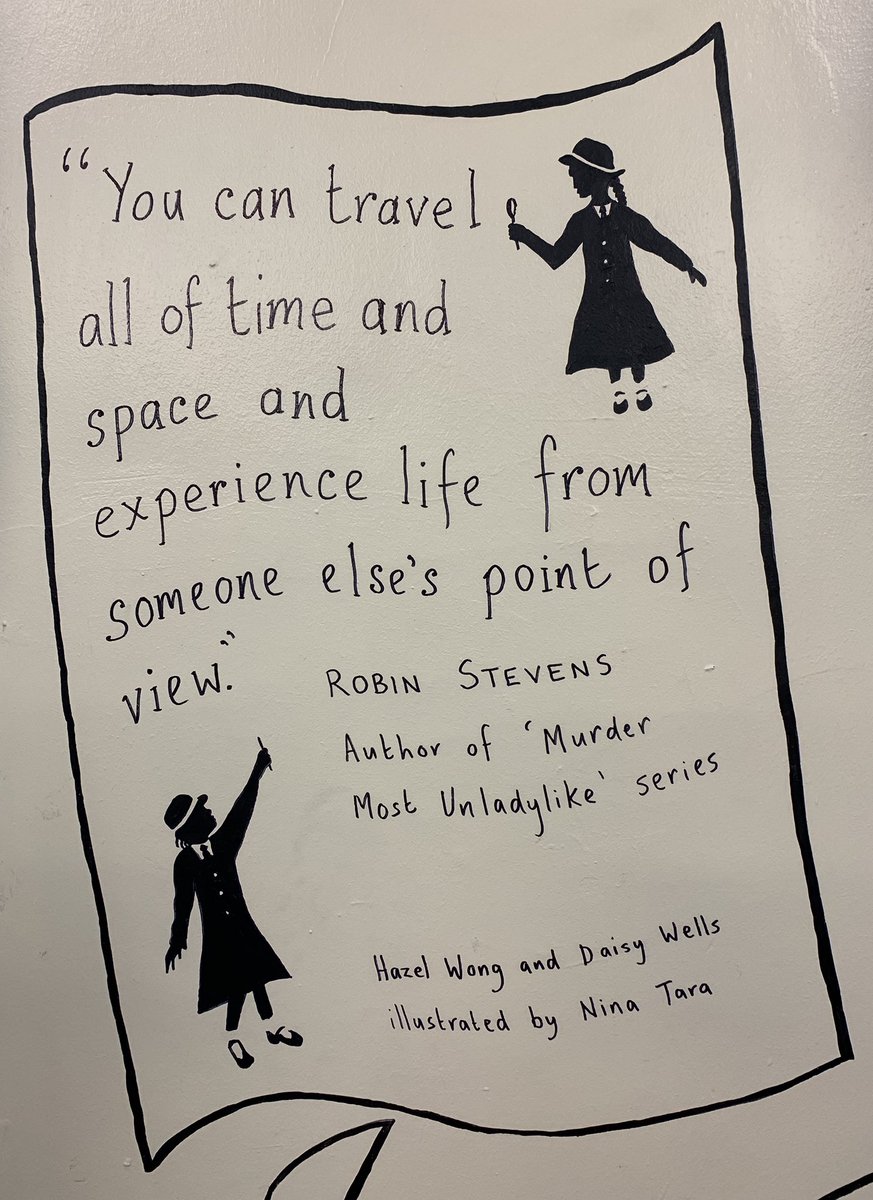 “You can travel
all of time and
space and
experience life from
someone else's point of
view.”
ROBIN STEVENS
Author of ‘Murder
Most Unladylike’ series
Hazel Wong and Daisy Wells
illustrated by Nina Tara